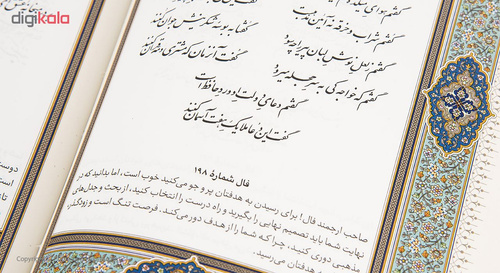 digikala
گفتم شراب و خرقه نه آیین مذهب است
گفتم ز لعل نوش لبان پیر را چه سود
گفتا به بوسه شکرینش جوان کنند
گفتم که خواجه کی به سر حجله می‌رود
گفت آن زمان که مشتری و مه قران کنند
گفتم دعای دولت او ورد حافظ است
گفت این دعا ملایک هفت آسمان کنند
فال شمارهٔ ۱۹۸
صاحب ارجمند فال! برای رسیدن به هدفتان پرو جو می‌کنید خوب است، اما بدانید که در
نهایت شما باید تصمیم نهایی را بگیرید و راه درست را انتخاب کنید، از بحث و جدل‌های
مذهبی دوری کنید، چرا که شما را از هدف دور می‌کند. فرصت تنگ است و زودگذر.
به هدفتان می‌رسید.
دوست
است
تا